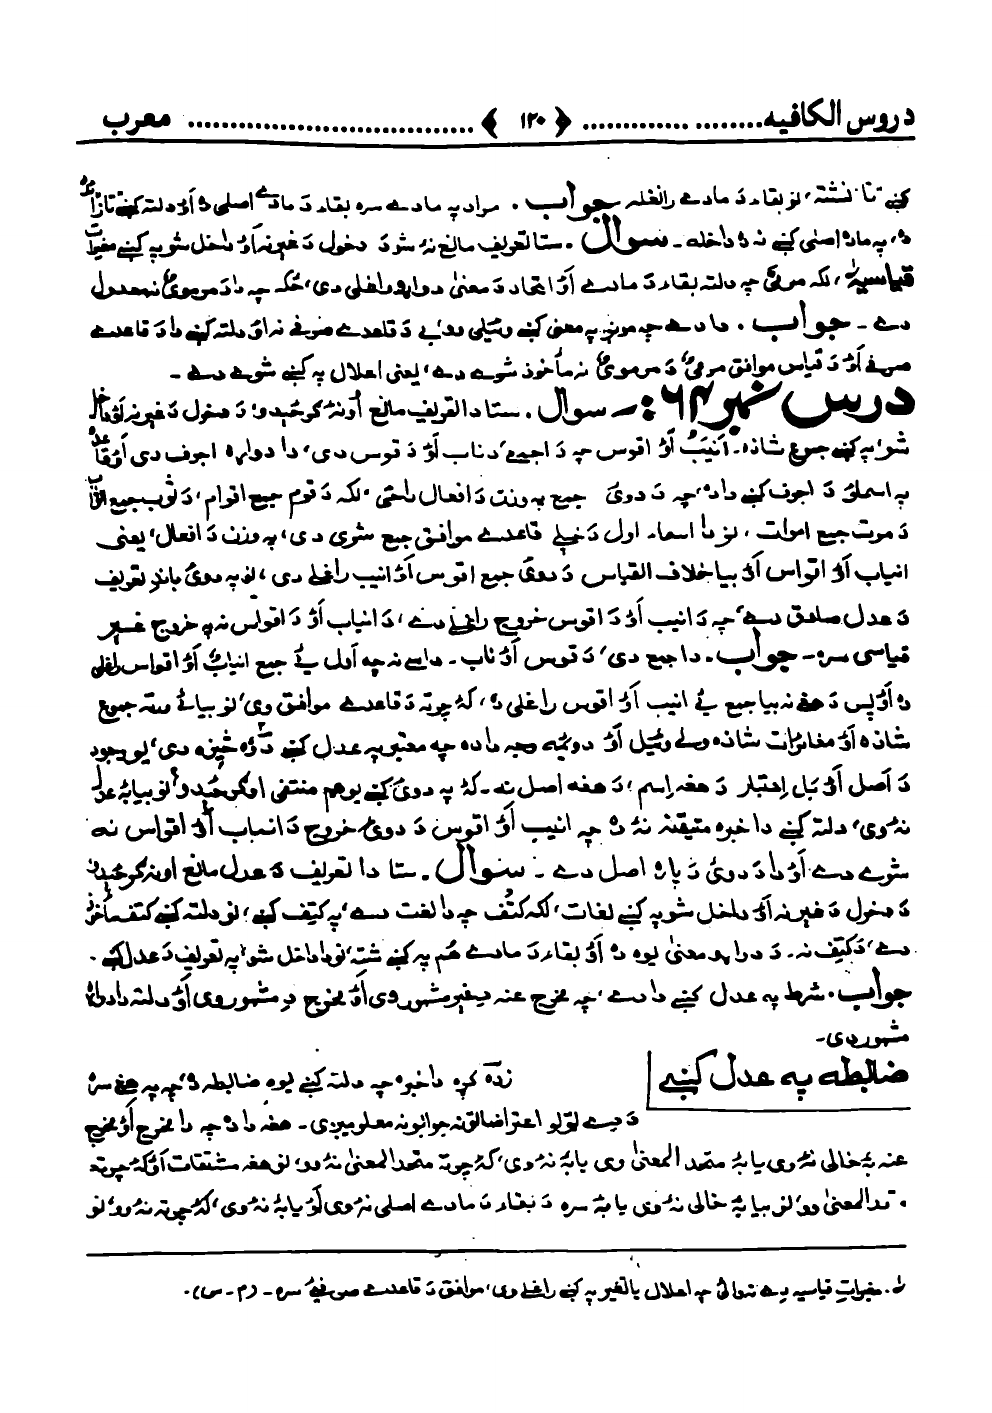 دروس الکافیه ............ ﴿ ۱۲۰ ﴾ ............ معرب
کنې تا نشته، نو بقاء دَ مادے راغله جواب. مراد په مادے سره بقاء دَ مادے اصلی ده اَوْ دلته کنې تا زائده
ده، په ماده اصلی کنې نه ده داخله۔ سوال. ستا تعریف مانع نهٔ شو دَ دخول دَ غیر نه اَوْ داخل شو په کنې مغیرات
قیاسیه، لکه مرمیٌ چه دلته بقاء دَ مادے اَوْ اتحاد دَ معنیٰ دواړه راغلی دی، ځکه چه دا دَ مرمویٌ نه معدول
دے۔ جواب. دا دے چه مونږ په معنی کنې وئیلی دو، بې دَ قاعدے صرفے نه اَوْ دلته کنې دا دَ قاعدے
صرفے اَوْ دَ قیاس موافق مرمیٌ دَ مرمویٌ نه مأخوذ شوے دے، یعنی اعلال په کنې شوے دے۔
درس نمبر ۶۴:۔ سوال. ستا دا تعریف مانع اُونهٔ ګرځیدو، دَ دخول دَ غیر نه اَوْ داخل
شو په کنې جموع شاذه۔ اَنْیَبٌ اَوْ اقوس چه دَ اجمعے دَ ناب اَوْ دَ قوس دی، دا دواړه اجوف دی اَوْ قاعده
په اسماء دَ اجوف کنې داده، چه دَ دوئ جمع په وزن دَ افعال راځی، لکه دَ قوم جمع اقوام، دَ ثوب جمع اثواب
دَ صوت جمع اصوات، نو دا اسماء اول دَ خپلے قاعدے موافق جمع شوی دی، په وزن دَ افعال، یعنی
انیاب اَوْ اقواس اَوْ بیا خلاف القیاس دَ دوئ جمع اقوس اَوْ انیب راغلے دی، نو په دوئ باندِ تعریف
دَ عدل صادق دے، چه دَ انیب اَوْ دَ اقوس خروج راغلے دے، دَ انیاب اَوْ دَ اقواس نه په خروج غیر
قیاسی سره۔ جواب. دا جمع دی، دَ قوس اَوْ ناب۔ داسے نه چه اول ئے جمع انیاب اَوْ اقواس راغلی
ده اَوْ پس دَ هغے نه بیا جمع ئے انیب اَوْ اقوس راغلی ده، که چرته دَ قاعدے موافق وی، نو بیا ئے ورته جموع
شاذه اَوْ مغائرات شاذه ولے وئیل اَوْ دوئمه وجه داده چه معتبر په عدل کنې دوه څیزه دی، یو وجود
دَ اَصل اَوْ بَل اِعتبار دَ هغه اِسم، دَ هغه اصل نه۔ که په دوئ کنې یو هم منتفی اوګرځیدو، نو بیا به عدل
نهٔ وی، دلته کنې دا خبره متیقنه نهٔ ده چه انیب اَوْ اقوس دَ دوئ خروج دَ انیاب اَوْ اقواس نه
شوے دے اَوْ دا دَ دوئ دَ پاره اصل دے۔ سوال. ستا دا تعریف دَ عدل مانع اونه ګرځیدو
دَ دخول دَ غیر نه اَوْ داخل شو په کنې لغات، لکه کتْف چه دا لغت دے، په کَتِف کنې، نو دلته کنې کتف مأخوذ
دے، دَ کَتِف نه۔ دَ دواړو معنیٰ یوه ده اَوْ بقاء دَ مادے هُم په کنې شته، نو دا داخل شو، په تعریف دَ عدل کنې.
جواب. شرط په عدل کنې دا دے، چه مخرج عنه به غیر مشهور وی اَوْ مخرج به مشهور وی اَوْ دلته دا دواړه
مشهور دی۔
ضابطه په عدل کنېے
زده کړه دا خبره چه دلته کنې یوه ضابطه ده، چه په هغے سره
دَ دے ټولو اعتراضاتو نه جوابونه معلومیږی۔ هغه دا ده چه دا مخرج اَوْ مخرج
عنه به خالی نهٔ وی یا به متحد المعنیٰ وی یا به نهٔ وی، که چرته متحد المعنیٰ نهٔ وو، نو هغه مشتقات اَوْ که چرته
متحد المعنیٰ وو، نو بیا به خالی نهٔ وی یا به سره دَ بقاء دَ مادے اصلی نه وی اَوْ یا به نهٔ وی، که چرته نهٔ وو، نو
لہ. مغیراتِ قیاسیه دِے ته وائی چه اعلال یا تغیر په کنې راغلے وی، موافق دَ قاعدے صرفیے سره۔ (م۔س).